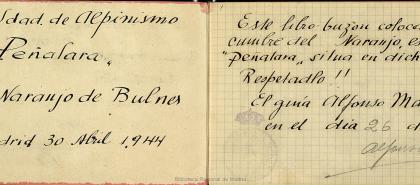 dad de Alpinismo
Peñalara„
Naranjo de Bulnes
drid 30 Abril 1,944
Este libro-buzon coloca
cumbre del Naranjo, es
"Peñalara„ situa en dich
Respetadlo !!
El guia Alfonso Ma
en el dia 26 d
Alfons
Biblioteca Regional de Madrid